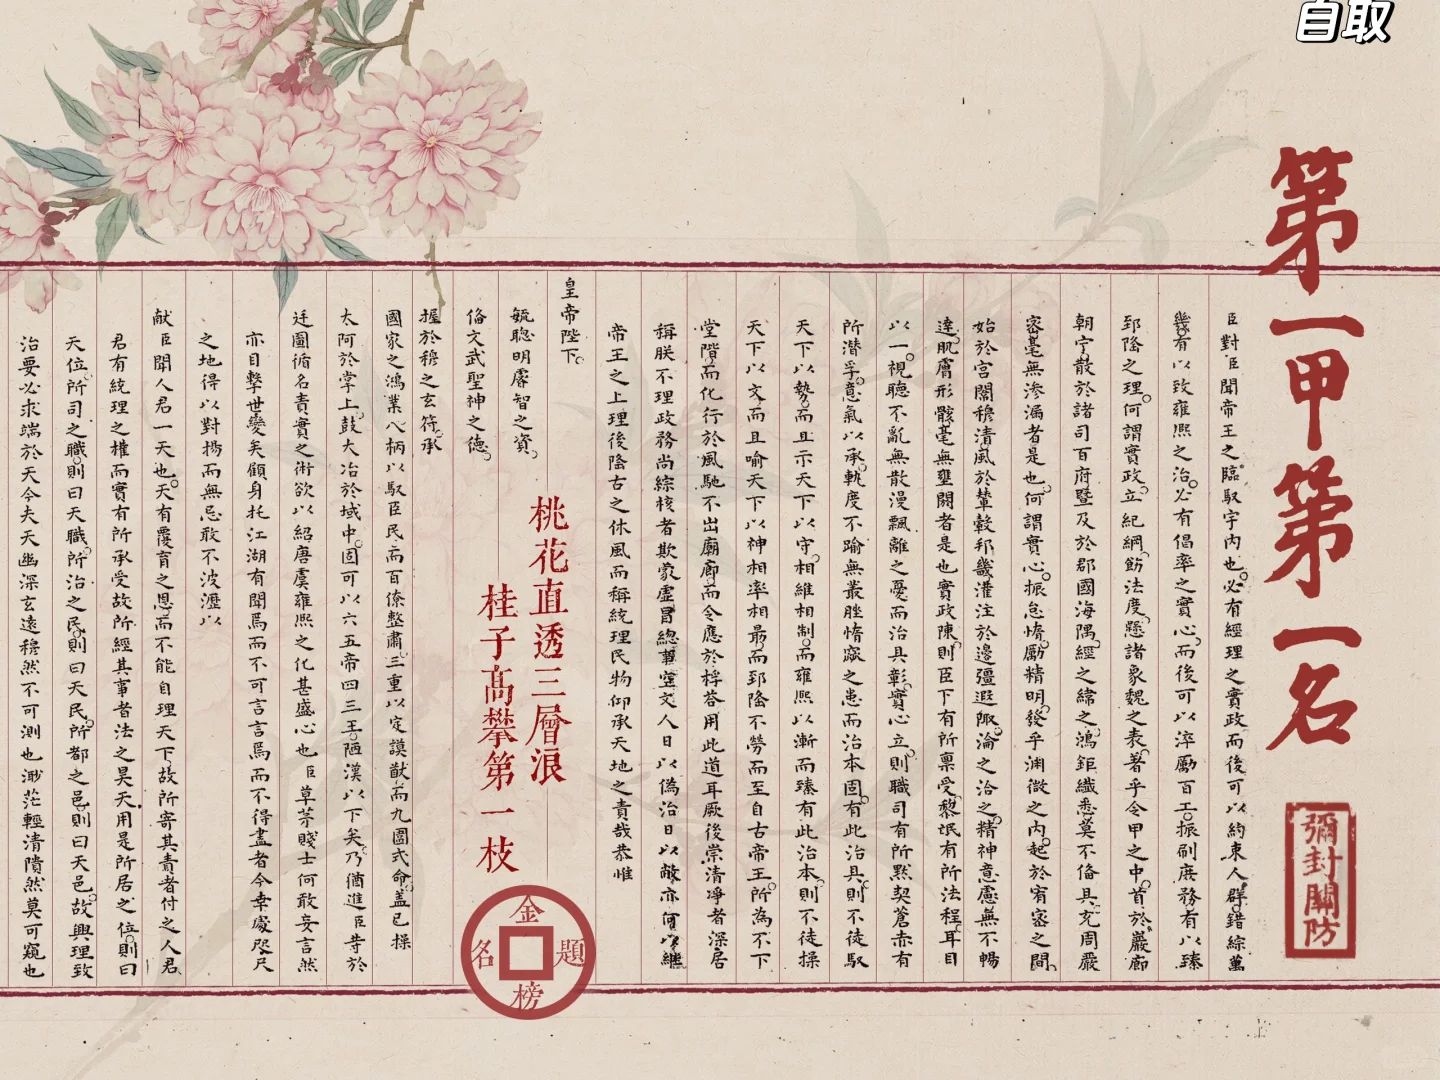 自取
第一甲第一名
彌封關防
臣對臣聞帝王之臨馭宇內也必有經理之實政而後可以約束人群錯綜萬
幾有以致雍熙之治必有倡率之實心而後可以淬勵百工振刷庶務有以臻
郅隆之理何謂實政立紀綱飭法度懸諸象魏之表著乎令甲之中首於巖廊
朝宁散於諸司百府暨及於郡國海隅經之緯之鴻鉅纖悉莫不俻具充周嚴
密毫無滲漏者是也何謂實心振怠惰勵精明發乎淵微之內起於宥密之間
始於宮闈穆清風於輦轂邦畿灌注於邊疆遐陬淪之洽之精神意慮無不暢
達肌膚形骸毫無壅閼者是也實政陳則臣下有所禀受黎氓有所法程耳目
以一視聽不亂無散漫飄離之憂而治具彰實心立則職司有所默契蒼赤有
所潛孚意氣以承軌度不踰無叢脞惰窳之患而治本固有此治具則不徒馭
天下以勢而且示天下以守相維相制而雍熙以漸而臻有此治本則不徒操
天下以文而且喻天下以神相率相最而郅隆不勞而至自古帝王所為不下
堂階而化行於風馳不出廟廊而令應於桴荅用此道耳厥後崇清凈者深居
稱朕不理政務尚綜核者欺蒙虛冒總事空文人日以偽治日以敝亦何以繼
帝王之上理後隆古之休風而稱統理民物仰承天地之責哉恭惟
皇帝陛下
毓聰明睿智之資
俻文武聖神之德
握於穆之玄符承
國家之鴻業八柄以馭臣民而百僚整肅三重以定謨猷而九圍式命蓋已操
太阿於掌上鼓大冶於域中固可以六五帝四三王陋漢以下矣乃猶進臣等於
廷圖循名責實之術欲以紹唐虞雍熙之化甚盛心也臣草茅賤士何敢妄言然
亦目擊世變矣顧身托江湖有聞焉而不可言言焉而不得盡者今幸處咫尺
之地得以對揚而無忌敢不波瀝以
献臣聞人君一天也天有覆育之恩而不能自理天下故所寄其責者付之人君
君有統理之權而實有所承受故所經其事者法之昊天用是所居之位則曰
天位所司之職則曰天職所治之民則曰天民所都之邑則曰天邑故興理致
治要必求端於天今夫天幽深玄遠穆然不可測也渺茫輕清隤然莫可窺也
桃花直透三層浪
桂子高攀第一枝
金榜題名